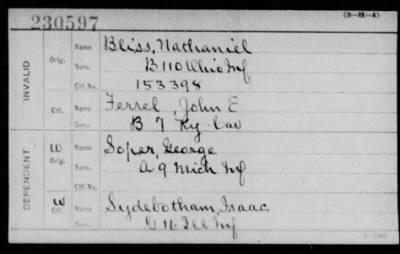 230597
(3-H-4)
INVALID
Orig.
Name Bliss, Nathaniel
Serv. B 110 Ohio Inf
Ctf. No. 153398
Ctf. Name Ferrel, John E
Serv. B 7 Ky Cav
DEPENDENT
W Orig.
Name Soper, George
Serv. A 9 Mich Inf
Ctf. No.
W Ctf.
Name Sydebotham, Isaac
Serv. G 116 Ill Inf